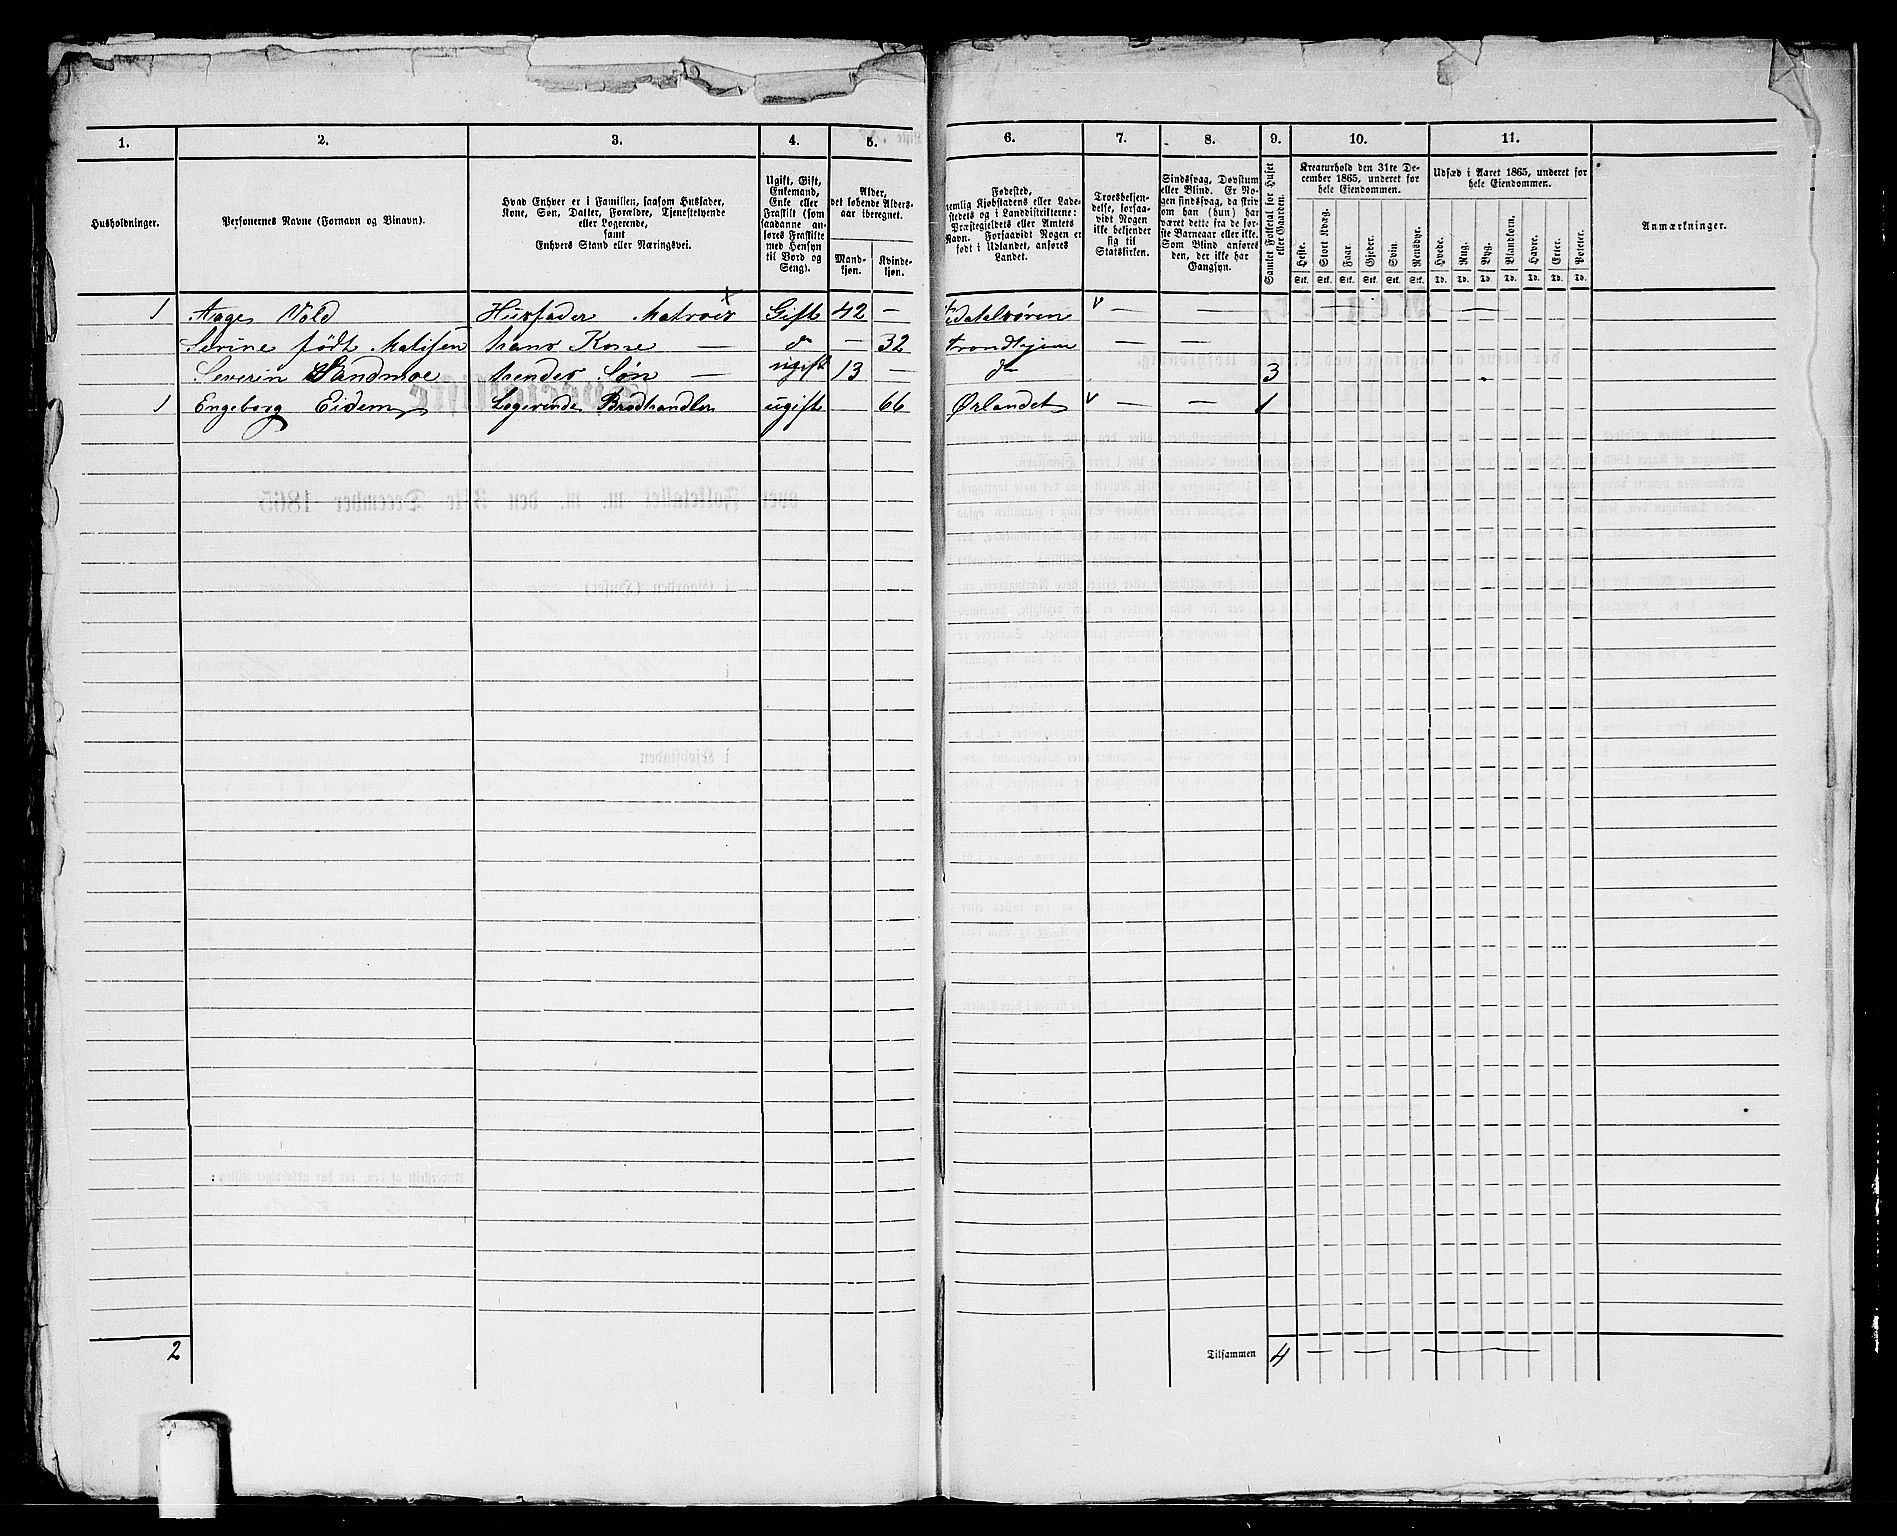 1. 2. 3. 4. 5. 6. 7. 8. 9. 10. 11.
Husholdninger.
Personernes Navne (Fornavn og Binavn).
Hvad Enhver er i Familien, saasom Husfader,
Kone, Søn, Datter, Forældre, Tjenestetyende
eller Logerende,
samt
Enhvers Stand eller Næringsvei.
Ugift, Gift,
Enkemand,
Enke eller
Fraskilt (som
saadanne an-
føres Fraskilte
med Hensyn
til Bord og
Seng).
Alder,
det løbende Alders-
aar iberegnet.
Mand-
kjøn.
Kvinde-
kjøn.
Fødested,
nemlig Kjøbstadens eller Lade-
stedets og i Landdistrikterne:
Præstegjeldets eller Amtets
Navn. Forsaavidt Nogen er
født i Udlandet, anføres
Landet.
Troesbekjen-
delse, forsaa-
vidt Nogen
ikke bekjender
sig til
Statskirken.
Sindssvag, Døvstum
eller Blind. Er No-
gen sindssvag, da skriv
om han (hun) har
været dette fra de før-
ste Barneaar eller ikke.
Som Blind anføres
den, der ikke har
Gangsyn.
Samlet Folketal for Huset
eller Gaarden.
Kreaturhold den 31te De-
cember 1865, underet for
hele Eiendommen.
Heste. Stort Kvæg. Faar. Gjeder. Svin. Rensdyr.
Stk. Stk. Stk. Stk. Stk. Stk.
Udsæd i Aaret 1865, underet for
hele Eiendommen.
Hvede. Rug. Byg. Blandkorn. Havre. Erter. Poteter.
Td. Td. Td. Td. Td. Td. Td.
Anmærkninger.
1 Aage Vold Husfader Matros Gift 42 —
Serine født Matisen hans Kone — do — 32 Trondhjem — —
Severin Sandmoe hendes Søn — ugift 13 — do 3
1 Engeborg Eidem Logerende Brødhandler ugift 66 Ørlandet v — — 1
2 Tilsammen 4 — — —